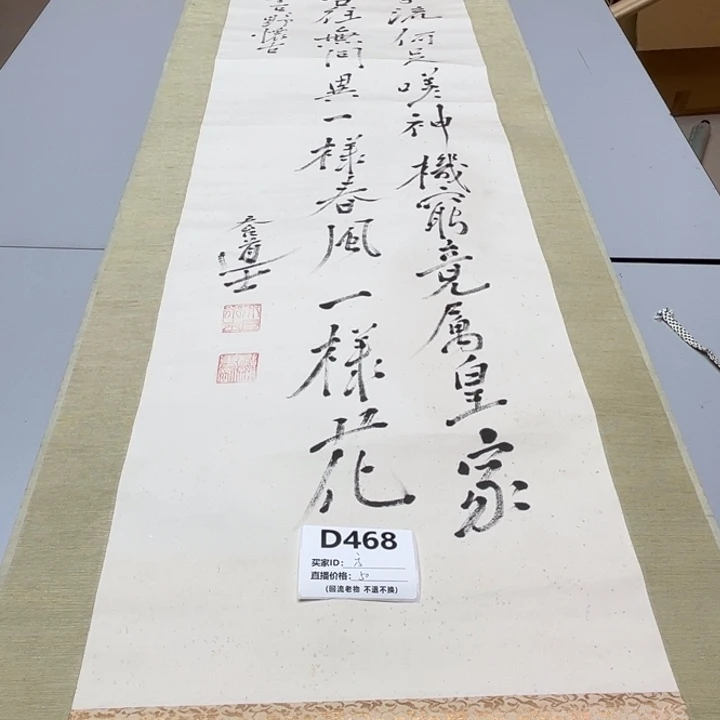 流何足嗟神機竟屬皇家
無問異一樣春風一樣花
吉野懷古
道士
D468
买家ID：
直播价格：50
（回流老物 不退不换）